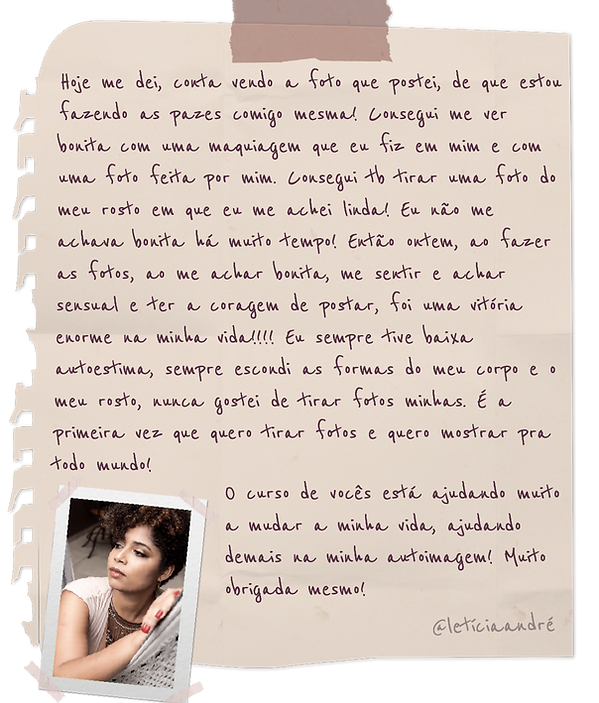 Hoje me dei, conta vendo a foto que postei, de que estou
fazendo as pazes comigo mesma! Consegui me ver
bonita com uma maquiagem que eu fiz em mim e com
uma foto feita por mim. Consegui tb tirar uma foto do
meu rosto em que eu me achei linda! Eu não me
achava bonita há muito tempo! Então ontem, ao fazer
as fotos, ao me achar bonita, me sentir e achar
sensual e ter a coragem de postar, foi uma vitória
enorme na minha vida!!!! Eu sempre tive baixa
autoestima, sempre escondi as formas do meu corpo e o
meu rosto, nunca gostei de tirar fotos minhas. É a
primeira vez que quero tirar fotos e quero mostrar pra
todo mundo!
O curso de vocês está ajudando muito
a mudar a minha vida, ajudando
demais na minha autoimagem! Muito
obrigada mesmo!
@letíciaandré